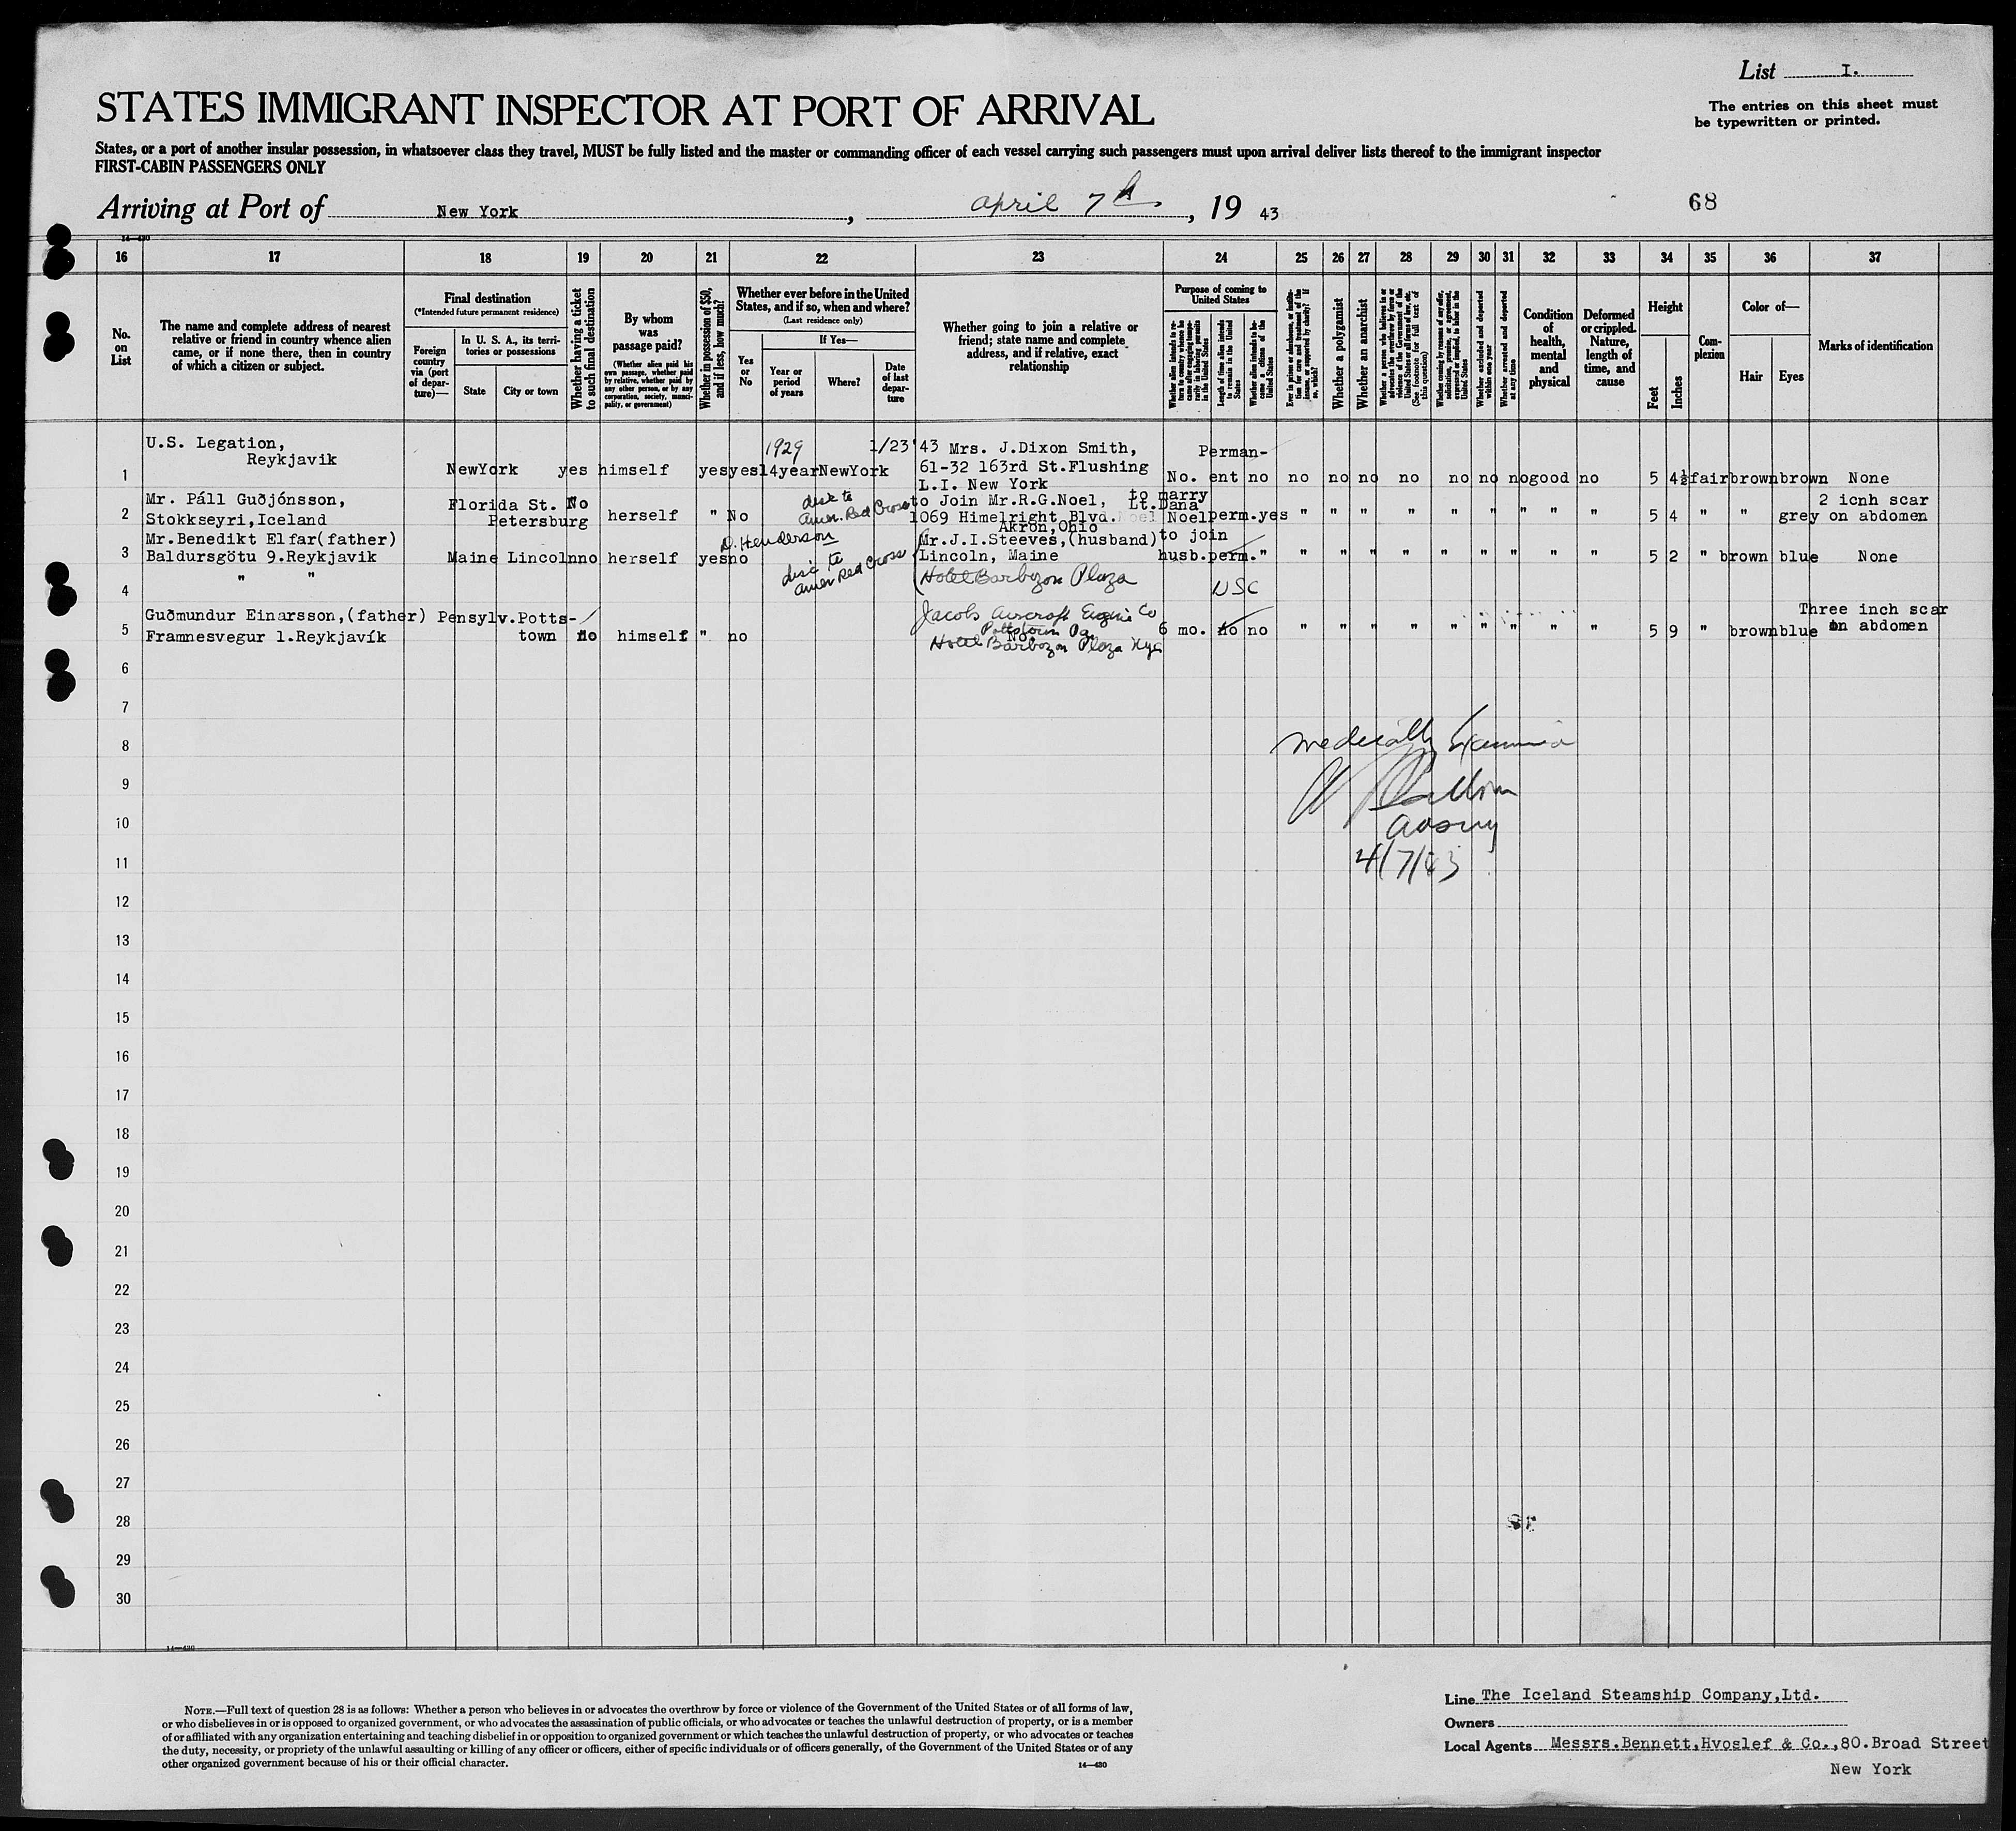 List I.
The entries on this sheet must
be typewritten or printed.
STATES IMMIGRANT INSPECTOR AT PORT OF ARRIVAL
States, or a port of another insular possession, in whatsoever class they travel, MUST be fully listed and the master or commanding officer of each vessel carrying such passengers must upon arrival deliver lists thereof to the immigrant inspector
FIRST-CABIN PASSENGERS ONLY
Arriving at Port of New York, April 7th, 19 43
68
14-430
16 17 18 19 20 21 22 23 24 25 26 27 28 29 30 31 32 33 34 35 36 37
No. on List
The name and complete address of nearest
relative or friend in country whence alien
came, or if none there, then in country
of which a citizen or subject.
Final destination
(*Intended future permanent residence)
Foreign country via (port of departure)—
In U. S. A., its territories or possessions
State
City or town
Whether having a ticket to such final destination
By whom was passage paid?
(Whether alien paid his own passage, whether paid by relative, whether paid by any other person, or by any corporation, society, municipality, or government)
Whether in possession of $50, and if less, how much?
Whether ever before in the United
States, and if so, when and where?
(Last residence only)
If Yes—
Yes or No
Year or period of years
Where?
Date of last departure
Whether going to join a relative or
friend; state name and complete
address, and if relative, exact
relationship
Purpose of coming to United States
Whether alien intends to return to country whence he came after engaging temporarily in laboring pursuits in the United States
Length of time alien intends to remain in the United States
Whether alien intends to become a citizen of the United States
Ever in prison or almshouse, or institution for care and treatment of the insane, or supported by charity? If so, which?
Whether a polygamist
Whether an anarchist
Whether a person who believes in or advocates the overthrow by force or violence of the Government of the United States or all forms of law, etc. (See footnote for full text of this question)
Whether coming by reason of any offer, solicitation, promise, or agreement, expressed or implied, to labor in the United States
Whether excluded and deported within one year
Whether arrested and deported at any time
Condition of health, mental and physical
Deformed or crippled. Nature, length of time, and cause
Height
Feet
Inches
Complexion
Color of—
Hair
Eyes
Marks of identification
1 U.S. Legation, Reykjavik NewYork yes himself yes yes 1929 14year NewYork 1/23'43 Mrs. J.Dixon Smith,
61-32 163rd St.Flushing
L.I. New York No. Perman-ent no no no no no no no no good no 5 4½ fair brown brown None
2 Mr. Páll Guðjónsson,
Stokkseyri,Iceland Florida St. Petersburg No herself " No disc to Amer. Red Cross to Join Mr.R.G.Noel,
1069 Himelright Blvd.
Akron,Ohio to marry Lt.Dana Noel perm. yes " " " " " " " " " " 5 4 " " grey 2 icnh scar
on abdomen
3 Mr.Benedikt Elfar(father)
Baldursgötu 9.Reykjavik Maine Lincoln no herself yes no D. Henderson disc to Amer Red Cross Mr.J.I.Steeves,(husband)
Lincoln, Maine to join husb. perm. " " " " " " " " " " " 5 2 " brown blue None
4 " " Hotel Barbizon Plaza USC
5 Guðmundur Einarsson,(father)
Framnesvegur 1.Reykjavík Pensylv. Potts-town no himself " no Jacobs Aircraft Engine Co
Pottstown Pa
No.
Hotel Barbizon Plaza Nyc 6 mo. no no " " " " " " " " " " 5 9 " brown blue Three inch scar
on abdomen
6
7
8
9
10
11
12
13
14
15
16
17
18
19
20
21
22
23
24
25
26
27
28
29
30
medically Examined
4/7/43
14-430
NOTE.—Full text of question 28 is as follows: Whether a person who believes in or advocates the overthrow by force or violence of the Government of the United States or of all forms of law,
or who disbelieves in or is opposed to organized government, or who advocates the assassination of public officials, or who advocates or teaches the unlawful destruction of property, or is a member
of or affiliated with any organization entertaining and teaching disbelief in or opposition to organized government or which teaches the unlawful destruction of property, or who advocates or teaches
the duty, necessity, or propriety of the unlawful assaulting or killing of any officer or officers, either of specific individuals or of officers generally, of the Government of the United States or of any
other organized government because of his or their official character.
14-430
Line The Iceland Steamship Company,Ltd.
Owners
Local Agents Messrs.Bennett,Hvoslef & Co.,80.Broad Street
New York